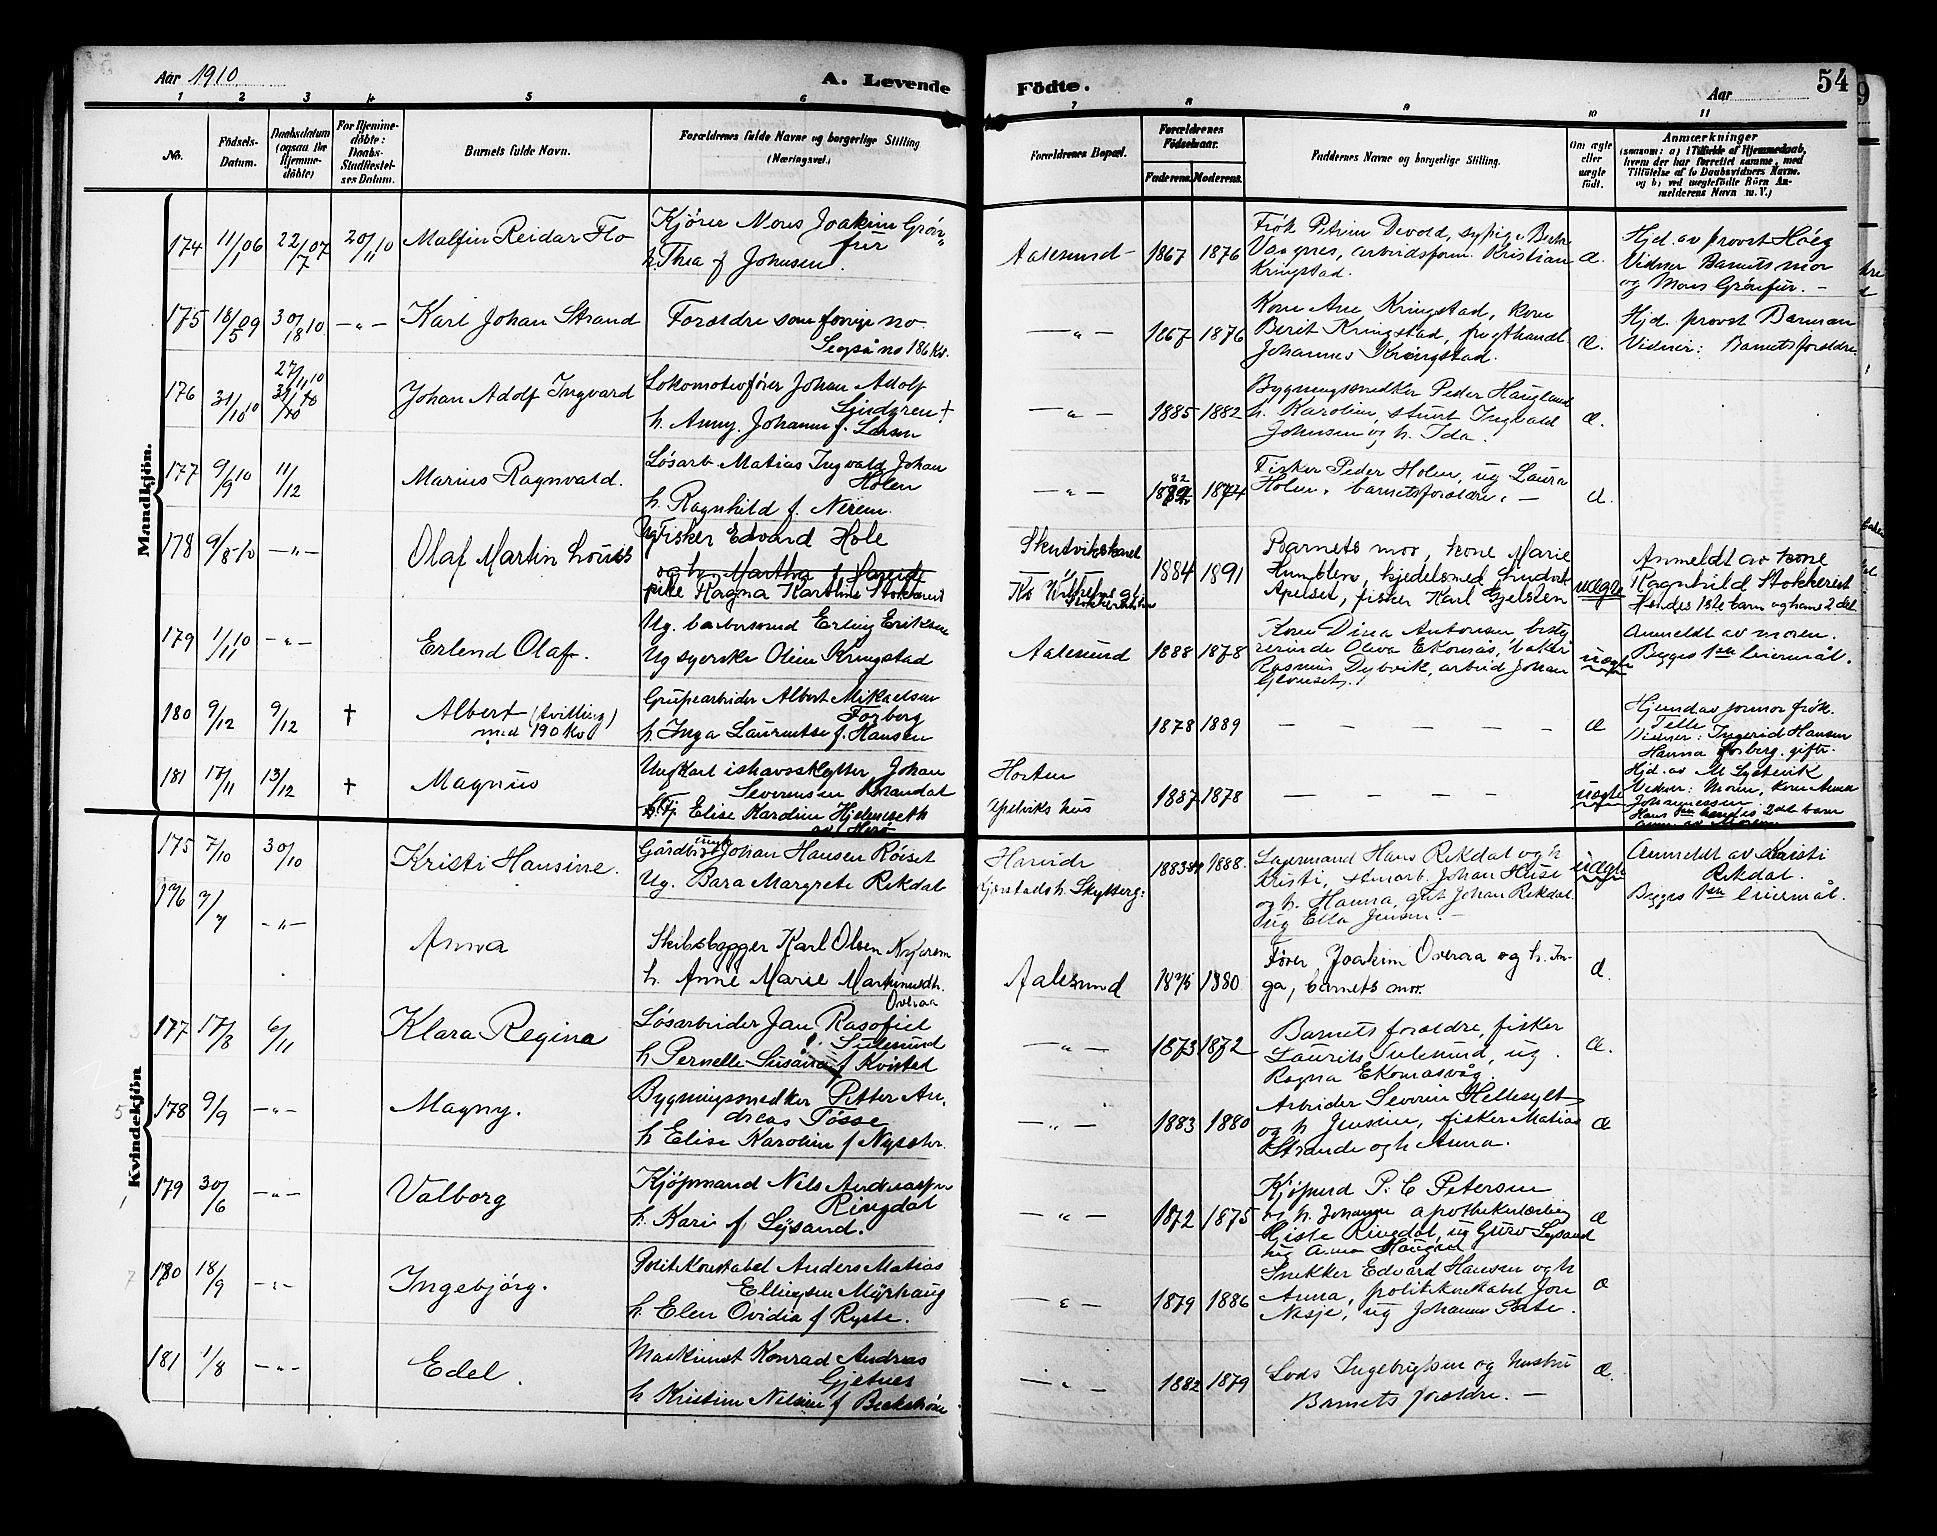 Aar 1910
A. Levende
Födte.
Aar
54
1 2 3 4 5 6 7 8 9 10 11
No.
Födsels-
Datum.
Daabsdatum
(ogsaa for
Hjemme-
döbte)
For Hjemme-
döbte:
Daabs-
Stadfæstel-
ses Datum.
Barnets fulde Navn.
Forældrenes fulde Navne og borgerlige Stilling
(Næringsvei.)
Forældrenes Bopæl.
Forældrenes
Födselsaar.
Faderens. Moderens.
Faddernes Navne og borgerlige Stilling.
Om ægte
eller
uægte
født.
Anmærkninger
(saasom: a) i Tilfælde af Hjemmedaab,
hvem der har forrettet samme, med
Tilföielse af to Daabsvidners Navne.
og b) ved uægtefödte Börn An-
melderens Navn m.V.)
Mandkjön.
174 11/1 06 22/7 07 20/11 10 Malfin Reidar Flo
Kjører Mons Joakim Grön-
fur
h. Thea f Johnsen
Aalesund 1867 1876
Frøk Petrine Devold, sypige
Vaagnes, arbeidsform. Kristian
Kringstad.
æ.
Hjd. av provst Höeg
Vidner Barnets mor
og Mons Grönfur. —
175 18/5 09 30/8 10 — „ — Karl Johan Strand
Forældre som forrige no.
Se også no 186 Kv.
— „ — 1867 1876
Kone Ane Kringstad, kone
Berit Kringstad, frugthandl.
Johannes Kringstad.
æ.
Hjd. provst Barman
Vidner: Barnets forældre
176 31/10 10 27/11 10 Johan Adolf Ingvard
Lokomotivfører Johan Adolf
Lindgren †
h. Anny Johanne f. Larsen
— „ — 1885 1882
Bygningssnedker Peder Haugland
h. Karoline, stuert Ingvald
Johnsen og h. Ida.
æ.
177 9/9 10 11/12 Marius Ragnvald.
Løsarb. Matias Ingvald Johan
Holen
h. Ragnhild f. Nerem.
— „ — 82 1874
Fisker Peder Holen, ug Laura
Holen, barnets forældre. —
æ.
178 9/8 10 — „ — Olaf Martin Louis
Ug Fisker Edvard Hole
og h. Martha f
pike Ragna Karoline Stokkereit
1884 1891
Barnets mor, kone Marie
Humblen, kjedelsmed Ludvik
Apelset, fisker Karl Gjelsten
uægte
Anmeldt av kone
Ragnhild Stokkereit
Hendes 1ste barn og hans 2 det
179 1/11 10 — „ — Erlend Olaf.
Ug. barbersvend Erling Eriksen
Ug syerske Oline Kringstad
Aalesund 1888 1878
Kone Dina Antonsen, besty
rerinde Oliva Ekornås, bakker
Rasmus Dybvik, arbeid Johan
uægte
Anmeldt av moren.
Begges 1ste leiermål.
180 9/12 9/12 † Albert (tvilling)
med 190 Kv)
Grubearbeider Albert Mikaelsen
Forberg
h. Inga Laurentse f. Hansen
1878 1889 — — — — —
æ
Hjemd av jormor frøk.
Telle
Vidner: Ingerid Hansen
Hanna Forberg, gifte.
181 17/11 13/12 † Magnus
Ungkarl ishavsskytter Johan
Severinsen Brandal
Elise Karoline Hjelmeseth
av Herø
1887 1878 — — — —
uægte
Hjd. av M
Vidner: Moren, kone Anna
Johannessen
Hans 1ste hendes 2det barn
Kvindekjön
175 7/10 30/10 Kristi Hansine.
Gårdbr. Johan Hansen Röiset
Ug. Bara Margrete Rekdal
1888.
Hans Rekdal og h
Kristi, stenarb. Johan Huse
og h. Hanna, gut Johan Rekdal
Pug Ella Jensen. —
uægte
Anmeldt av Kristi
Rekdal.
Begges 1ste leiermål.
176 — „ — Anna
Skibsbygger Karl Olsen Nyerem
h. Anne Marie
Overaa
Aalesund 1880
Fører Joakim Overaa og h. In-
ga, barnets mor.
æ
177 17/8 6/11 Klara Regina
Løsarbeider Jan
Sulesund
h Pernelle Susanna f Kvistad
— „ — 1873 1872
Barnets forældre, fisker
Laurits Sulesund, ug
Ragna Ekornsvåg
æ.
178 9/9 — „ — Magny.
Bygningssnedker Petter An-
dreas Tösse
h Elise Karoline f
— „ — 1883 1880
Arbeider Severin Hellesylt
og h Jensine, fisker Matias
Strande og h Anna.
æ
179 30/6 — „ — Valborg
Kjöpmand Nils Andreas
Ringdal
h. Kari f Lysand.
— „ — 1872 1875
Kjöpmd P. C Petersen
og h. Johanne apothekerlærling
Ringdal, ug Guro Lysand
ug Anna
æ
180 18/9 — „ — Ingebjörg.
Politikonstabel Anders Matias
Ellingsen Myrhaug
h Elen Ovidia f Ryste.
— „ — 1879 1886
Snekker Edvard Hansen og h
Anna, politikonstabel Jon
Nesje, ug Johanne
æ
181 1/8 — „ — Edel.
Maskinist Konrad Andreas
Gjetnes
h Kristine Nelsine f
— „ — 1882 1879
Lods Ingebrigtsen og hustru
Barnets forældre. —
æ.